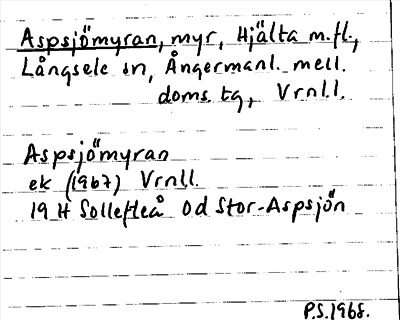 Aspsjömyran, myr, Hjälta m.fl.,
Långsele sn, Ångermanl. mell.
doms. tg, Vrnll.
Aspsjömyran
ek (1967) Vrnll.
19 H Sollefteå Od Stor-Aspsjön
P.S. 1968.